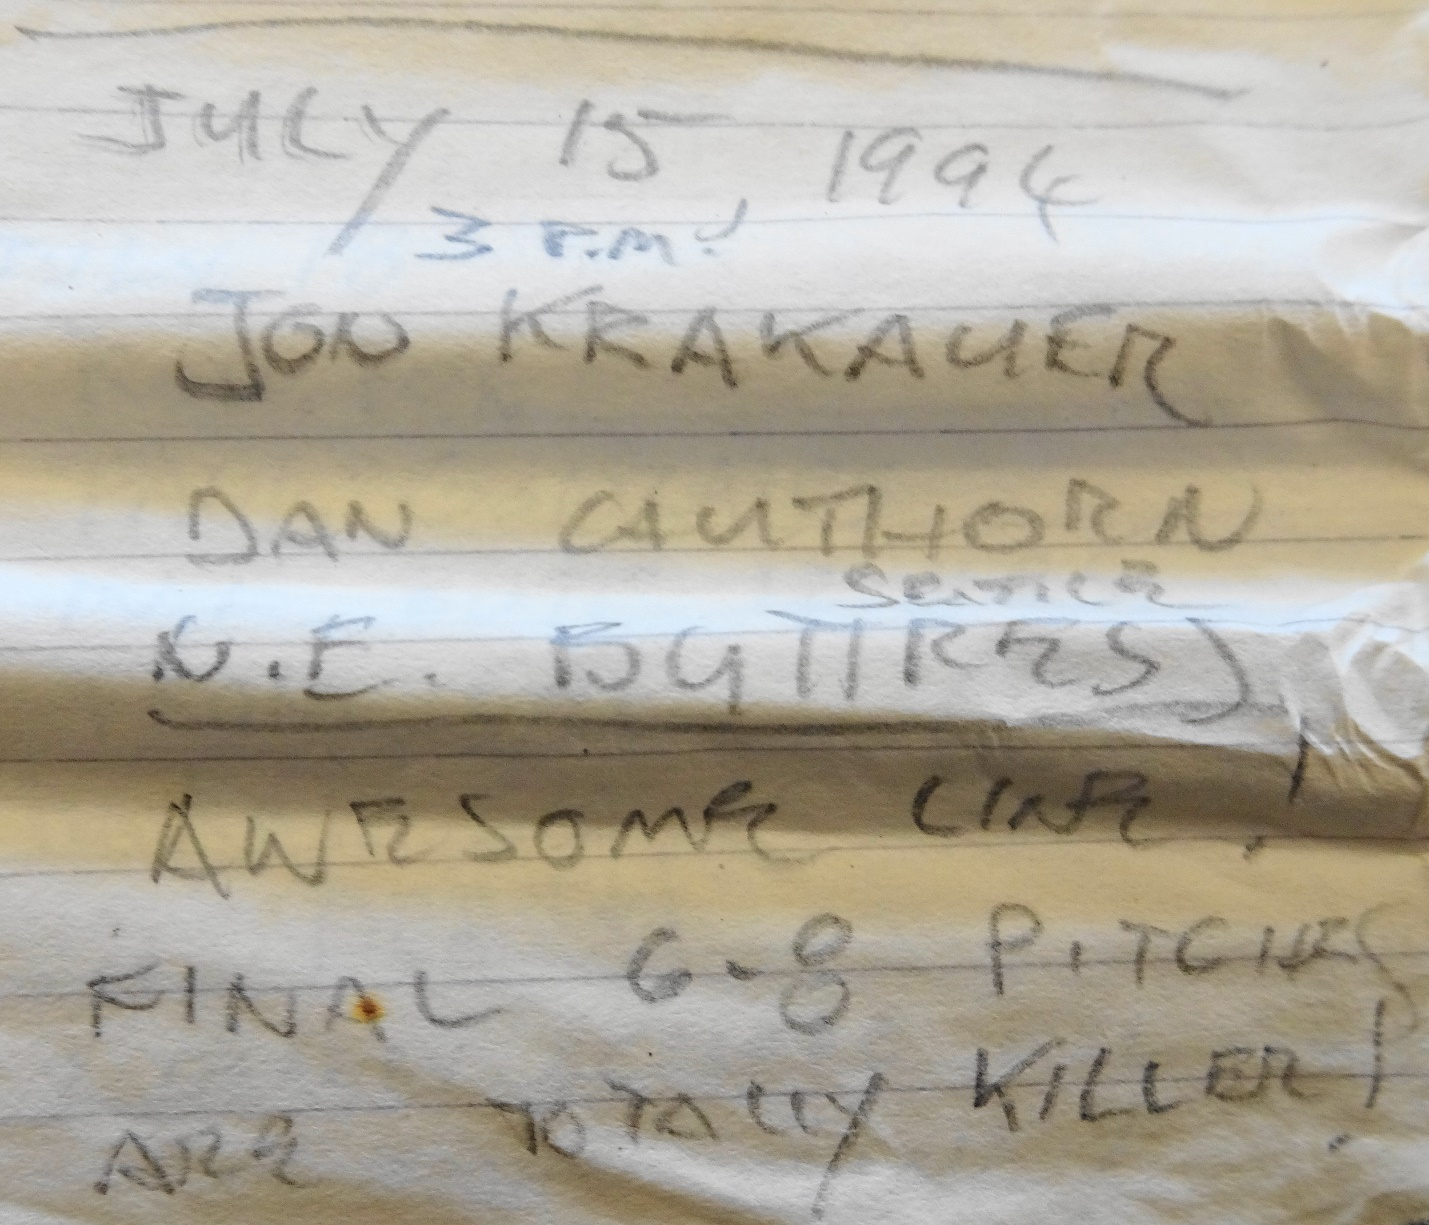 JULY 15, 1994
3 P.M!
JON KRAKAUER
DAN CAUTHORN
SEATTLE
N.E. BUTTRESS
AWESOME LINE!
FINAL 6-8 PITCHES
ARE TOTALLY KILLER!